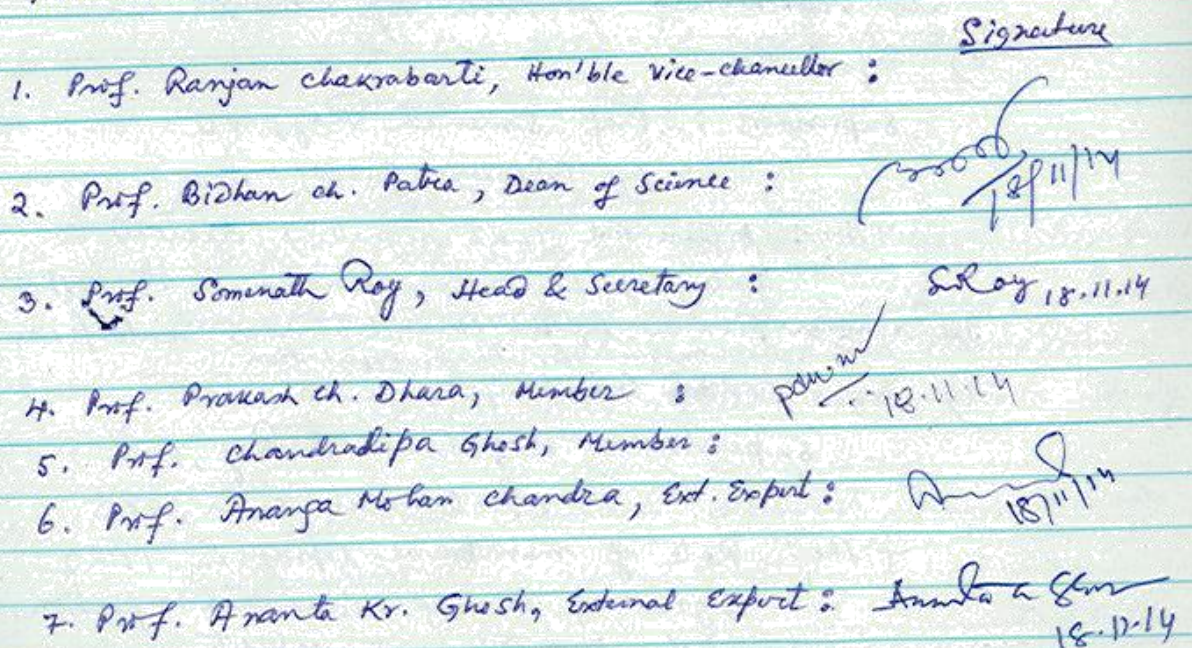 Signature
1. Prof. Ranjan Chakrabarti, Hon'ble Vice-chancellor :
2. Prof. Bidhan ch. Patra, Dean of Science : 18/11/14
3. Prof. Somenath Roy, Head & Secretary : SRoy 18.11.14
4. Prof. Prakash Ch. Dhara, Member : 18.11.14
5. Prof. Chandradipa Ghosh, Member :
6. Prof. Ananga Mohan Chandra, Ext. Expert : 18/11/14
7. Prof. Ananta Kr. Ghosh, External Expert :
18.11.14